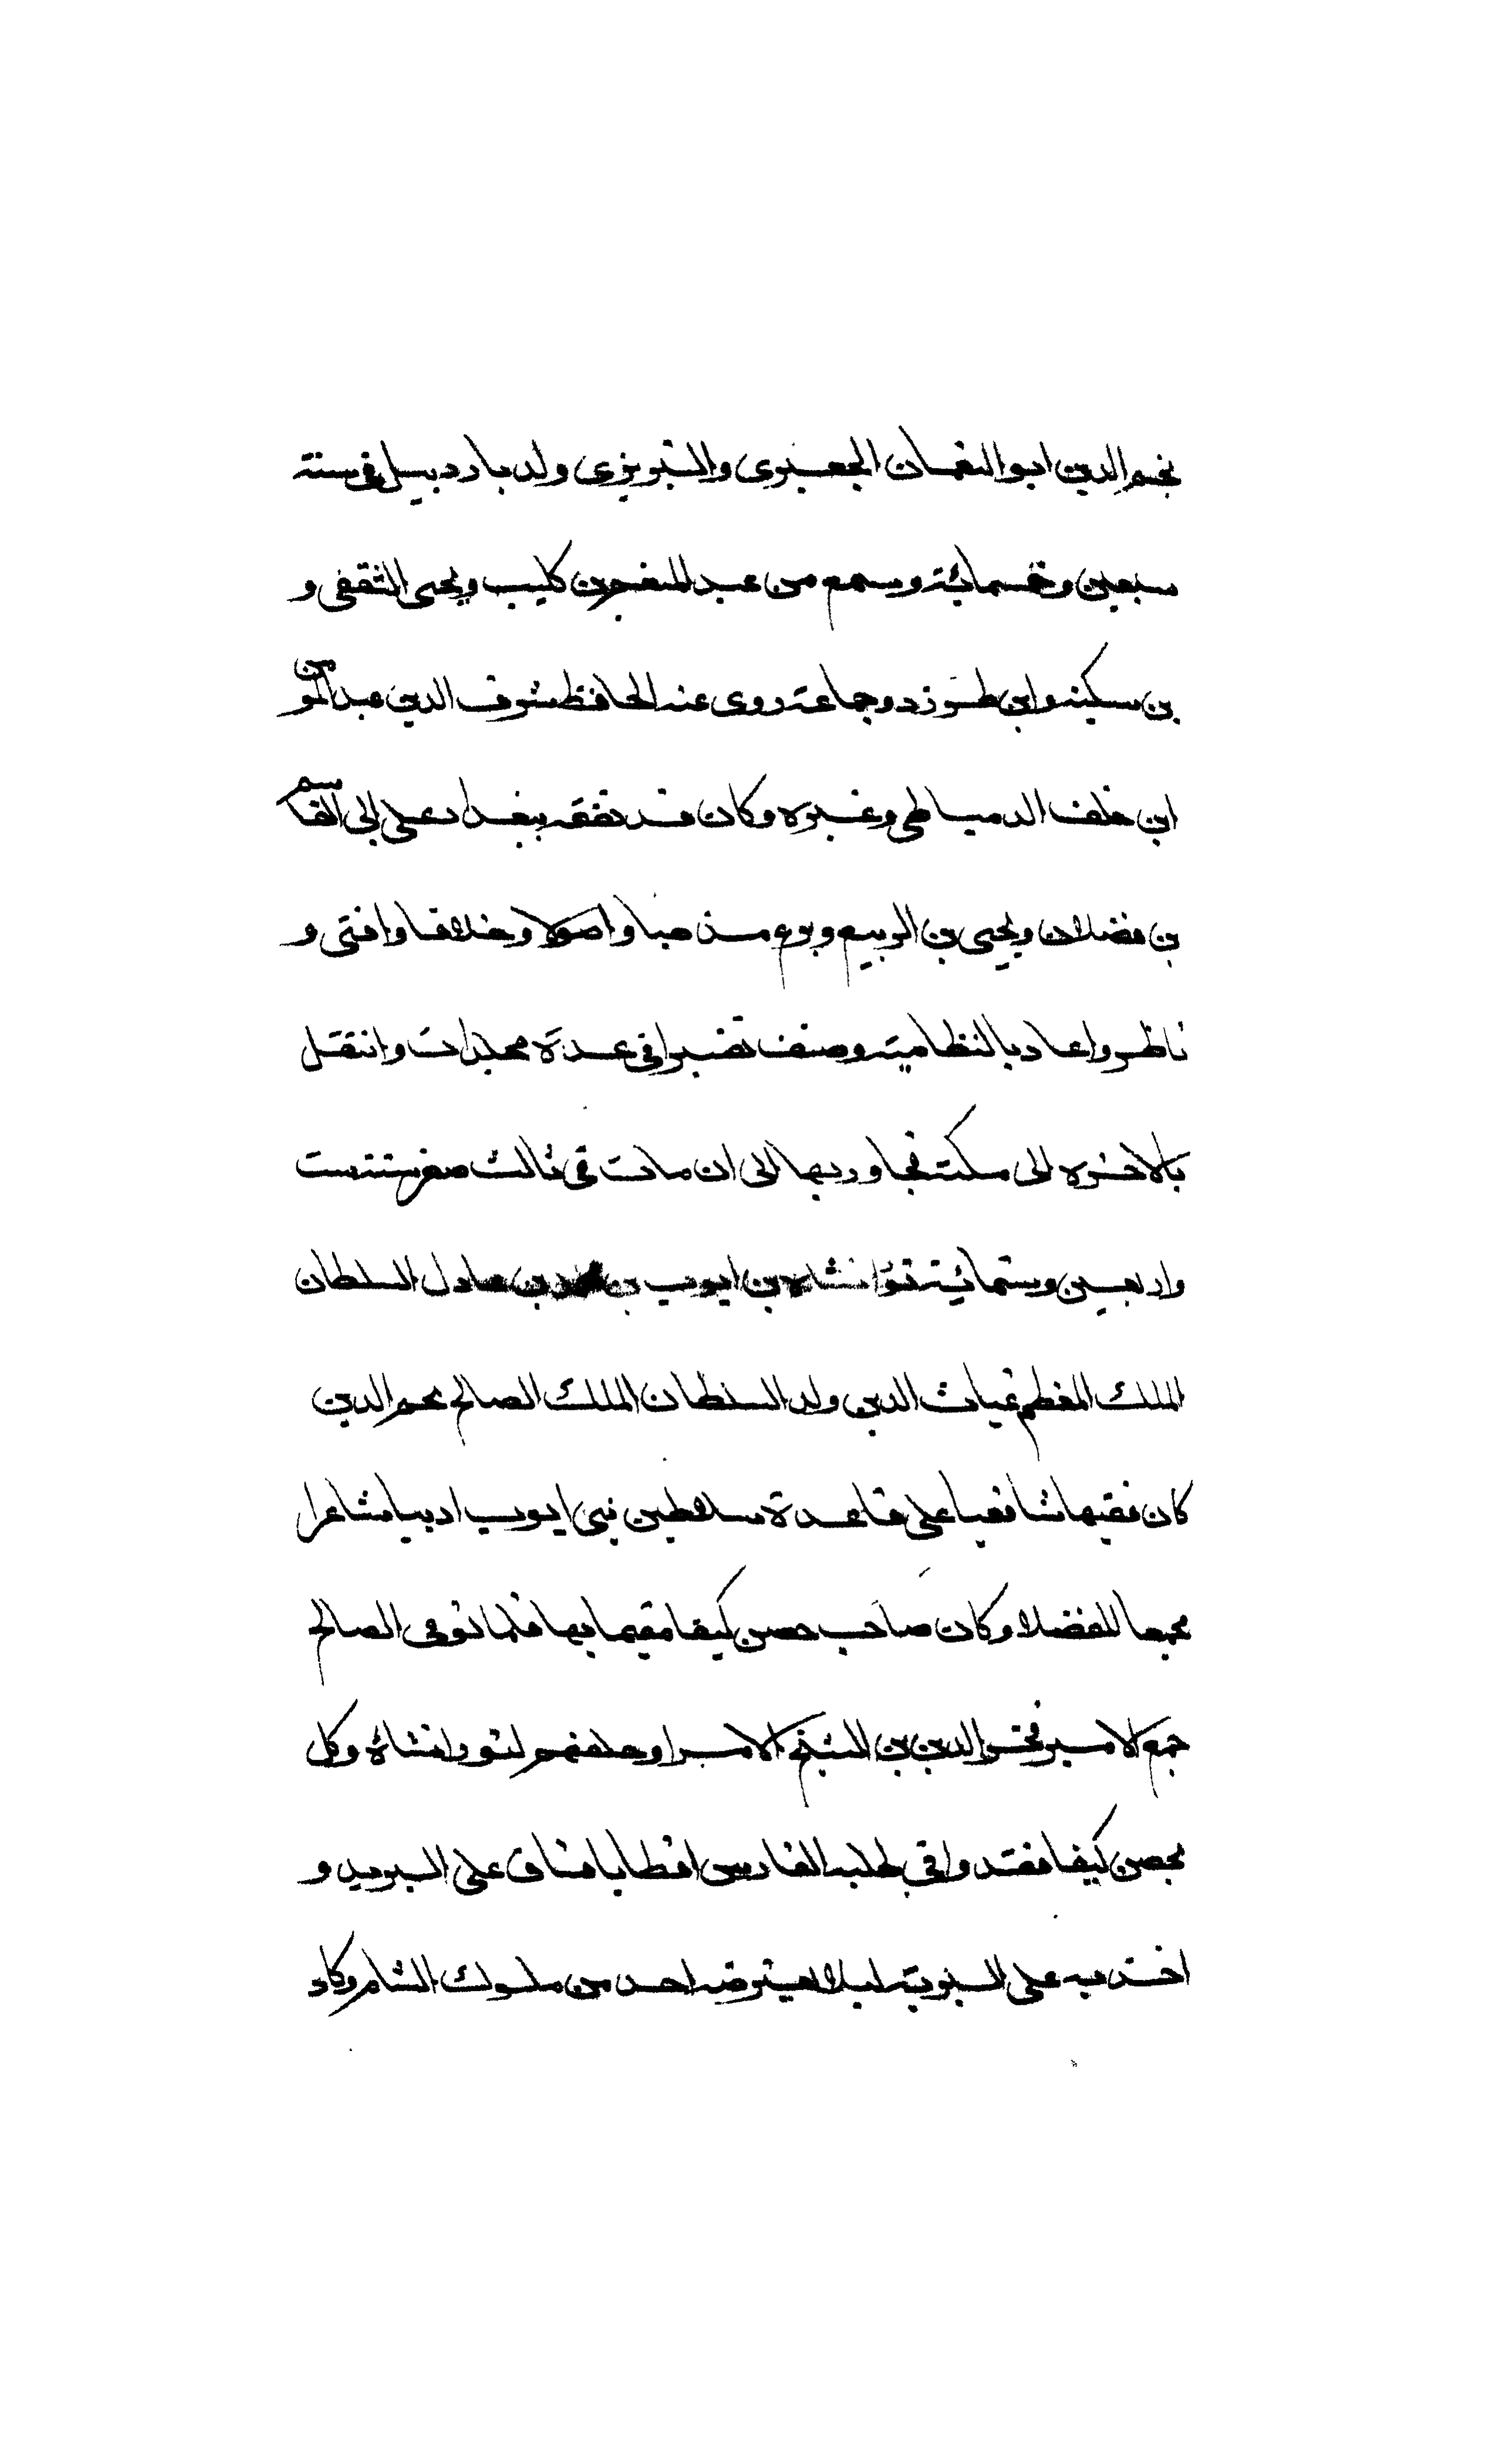 نجم الدين ابو النعمان الجعبري والتبريزي ولد بارد بيل في سنة
سبعين وخمسمائة وسمع من عبد المنعم بن كليب ويحيى الثقفى و
بن سكينه وابن طبرزد وجماعة روى عنه الحافظ شرف الدين عبد المومن
ابن خلف الدمياطي وغيره وكان قد تفقه ببغداد على ابى القاسم
بن فضلان ويحيى بن الربيع وبرع مذهبا واصولا وخلافا وافتى و
ناظر واعاد بالنظامية وصنف تفسيرا في عدة مجلدات وانتقل
بالاخره الى مكة فجاور بها الى ان مات في ثالث صفر سنة ست
واربعين وستمائة تورانشاه بن ايوب بن محمد بن عادل السلطان
الملك المعظم غياث الدين ولد السلطان الملك الصالح نجم الدين
كان فقيها شافعيا على قاعدة سلاطين بنى ايوب اديبا شاعرا
مجمعا للفضلا وكان صاحب حصن كيفا مقيما بها فلما توفى الصالح
جمع الامير فخر الدين بن الشيخ الامرا وحلفهم لتورانشاه وكان
بحصن كيفا فنفد وافي طلبه الفارسي اقطايا فساق على البريد و
اخذ به على البرية ليلا يعترضه احد من ملوك الشام وكاد